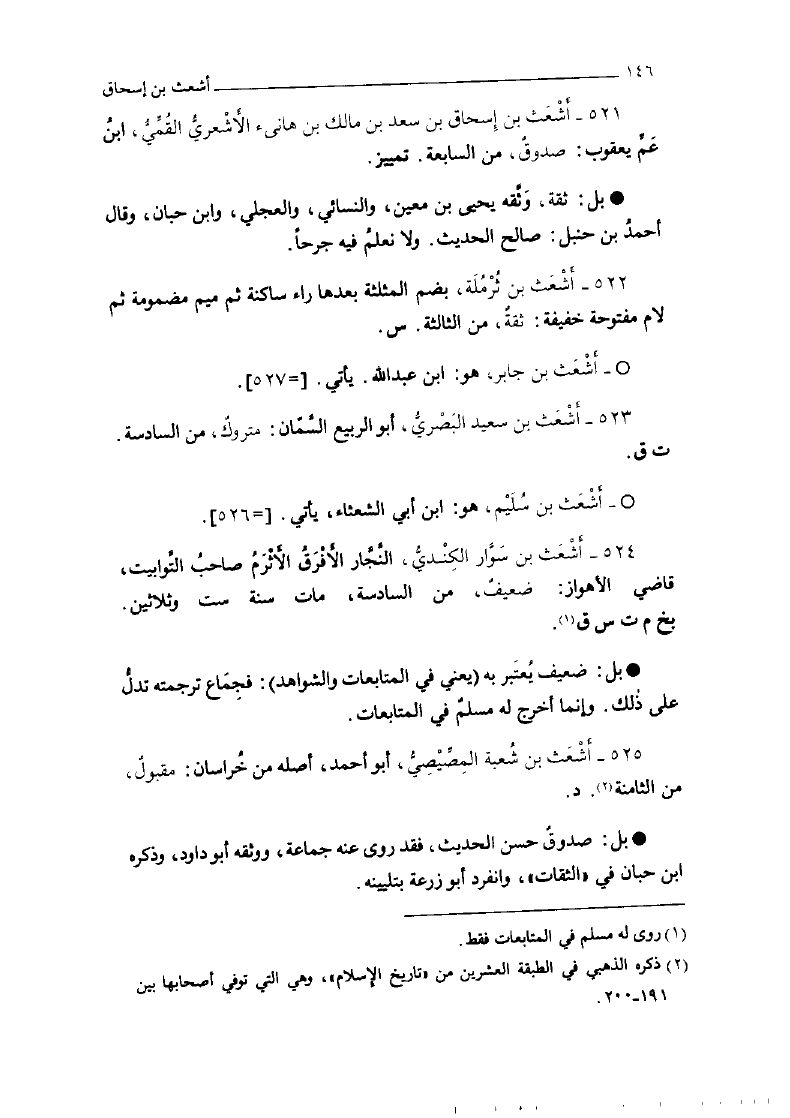 ١٤٦ أشعث بن إسحاق
٥٢١ ـ أَشْعَث بن إسحاق بن سعد بن مالك بن هانىء الأَشْعريُّ القُمِّيُّ، ابنُ
عَمِّ يعقوب: صدوقٌ، من السابعة. تمييز.
● بل: ثقة، وَثَّقه يحيى بن معين، والنسائي، والعجلي، وابن حبان، وقال
أحمدُ بن حنبل: صالح الحديث. ولا نعلمُ فيه جرحاً.
٥٢٢ ـ أَشْعَث بن ثُرْمُلَة، بضم المثلثة بعدها راء ساكنة ثم ميم مضمومة ثم
لام مفتوحة خفيفة: ثقةٌ، من الثالثة. س.
○ ـ أَشْعَث بن جابر، هو: ابن عبدالله. يأتي. [=٥٢٧].
٥٢٣ ـ أَشْعَث بن سعيد البَصْريُّ، أبو الربيع السَّمّان: متروكٌ، من السادسة.
ت ق.
○ ـ أَشْعَث بن سُلَيْم، هو: ابن أبي الشعثاء، يأتي. [=٥٢٦].
٥٢٤ ـ أَشْعَث بن سَوَّار الكِنْديُّ، النَّجَّار الأَفْرَقُ الأَثْرَمُ صاحبُ التَّوابيت،
قاضي الأهواز: ضعيفٌ، من السادسة، مات سنة ست وثلاثين.
بخ م ت س ق(١).
● بل: ضعيف يُعتَبر به (يعني في المتابعات والشواهد): فجِمَاع ترجمته تدلُّ
على ذٰلك. وإنما أخرج له مسلمٌ في المتابعات.
٥٢٥ ـ أَشْعَث بن شُعبة المِصِّيْصِيُّ، أبو أحمد، أصله من خُراسان: مقبولٌ،
من الثامنة(٢). د.
● بل: صدوقٌ حسن الحديث، فقد روى عنه جماعة، ووثقه أبو داود، وذكره
ابن حبان في «الثقات»، وانفرد أبو زرعة بتليينه.
(١) روى له مسلم في المتابعات فقط.
(٢) ذكره الذهبي في الطبقة العشرين من «تاريخ الإسلام»، وهي التي توفي أصحابها بين
١٩١ـ٢٠٠.